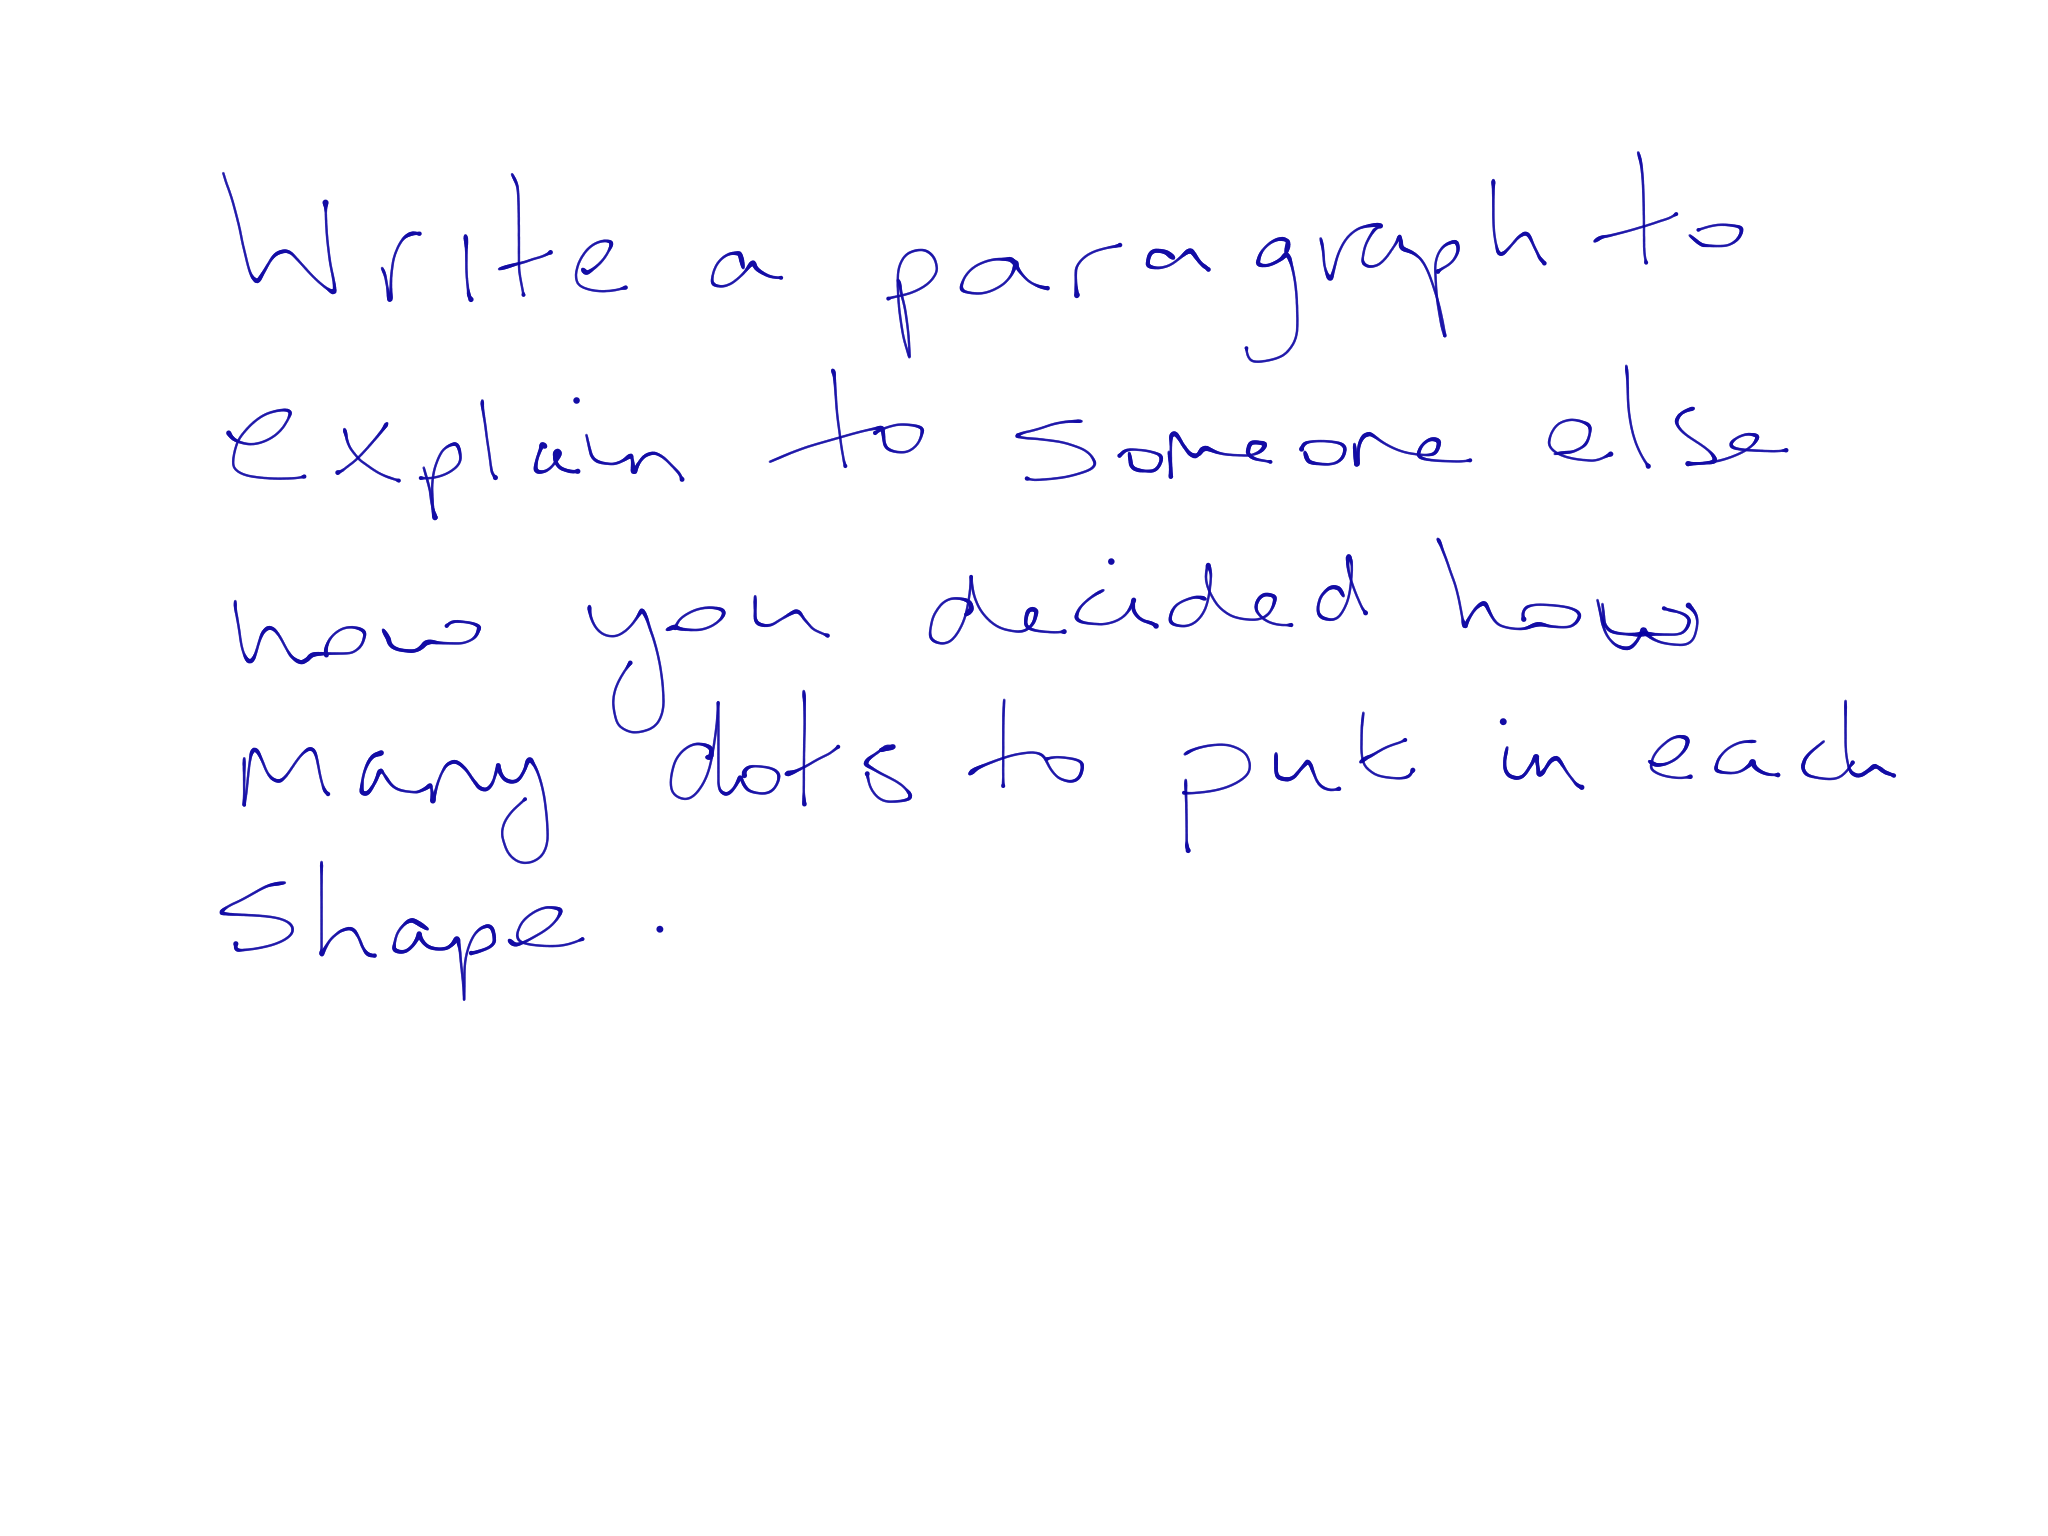 Write a paragraph to
explain to someone else
how you decided how
many dots to put in each
shape.